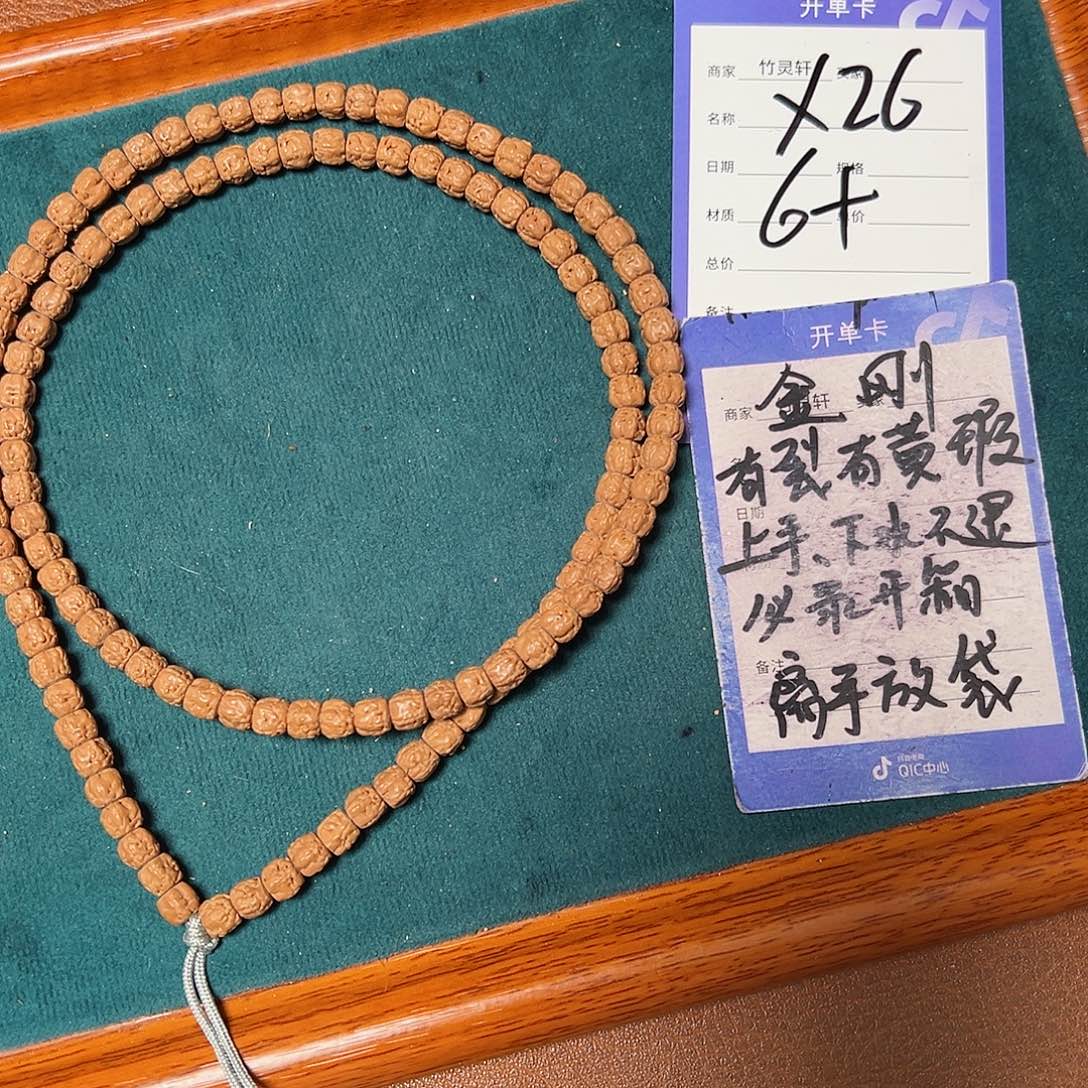 开单卡
商家 竹灵轩
X26
名称
日期 规格
6+
材质
总价
备注
开单卡
金刚
商家 轩
有裂有黄瑕
日期
上手、下水不退
必录开箱
备注
离手放袋
QIC中心